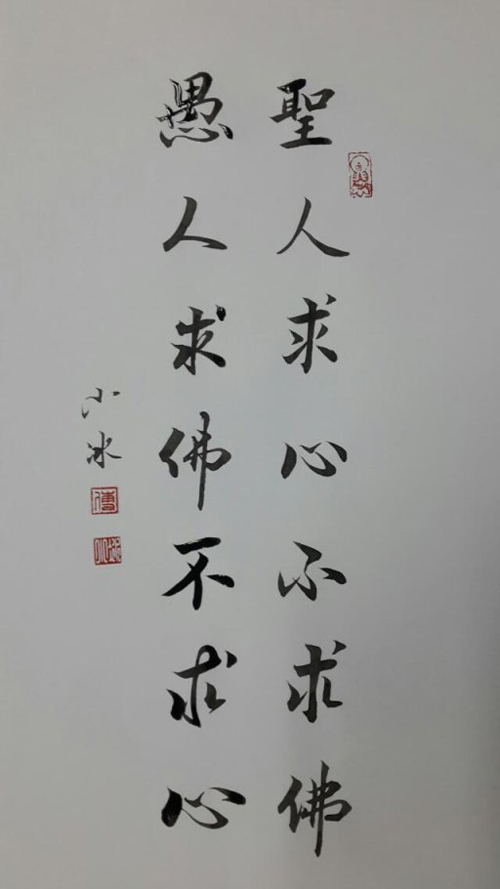 聖人求心不求佛
愚人求佛不求心
小冰
傅